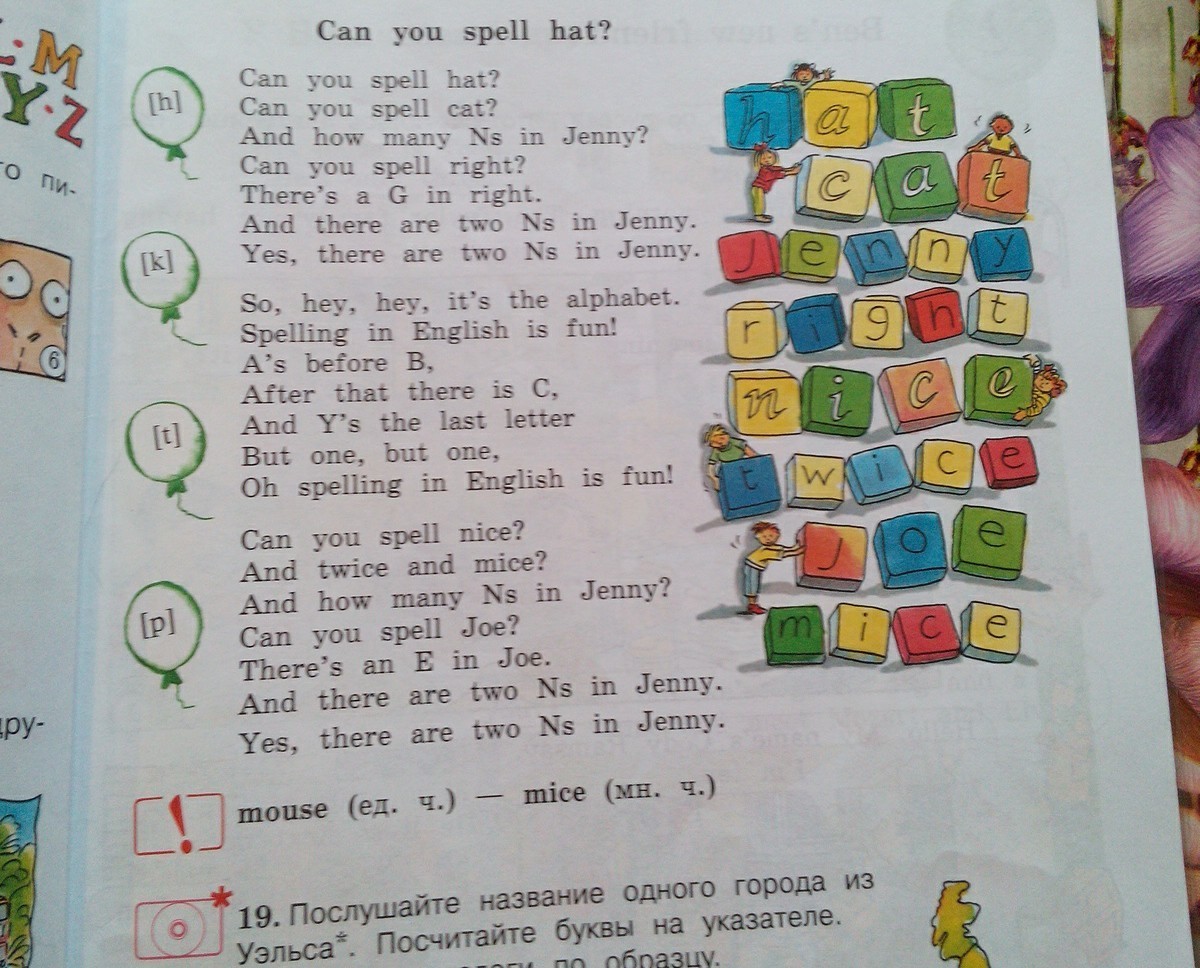 Can you spell hat?
[h]
Can you spell hat?
Can you spell cat?
And how many Ns in Jenny?
Can you spell right?
There's a G in right.
And there are two Ns in Jenny.
Yes, there are two Ns in Jenny.
[k]
So, hey, hey, it's the alphabet.
Spelling in English is fun!
A's before B,
After that there is C,
And Y's the last letter
But one, but one,
Oh spelling in English is fun!
[t]
Can you spell nice?
And twice and mice?
And how many Ns in Jenny?
Can you spell Joe?
There's an E in Joe.
And there are two Ns in Jenny.
Yes, there are two Ns in Jenny.
[p]
hat
cat
Jenny
right
nice
twice
Joe
mice
! mouse (ед. ч.) — mice (мн. ч.)
* 19. Послушайте название одного города из
Уэльса*. Посчитайте буквы на указателе.
по образцу.
M
Y·Z
пи-
6